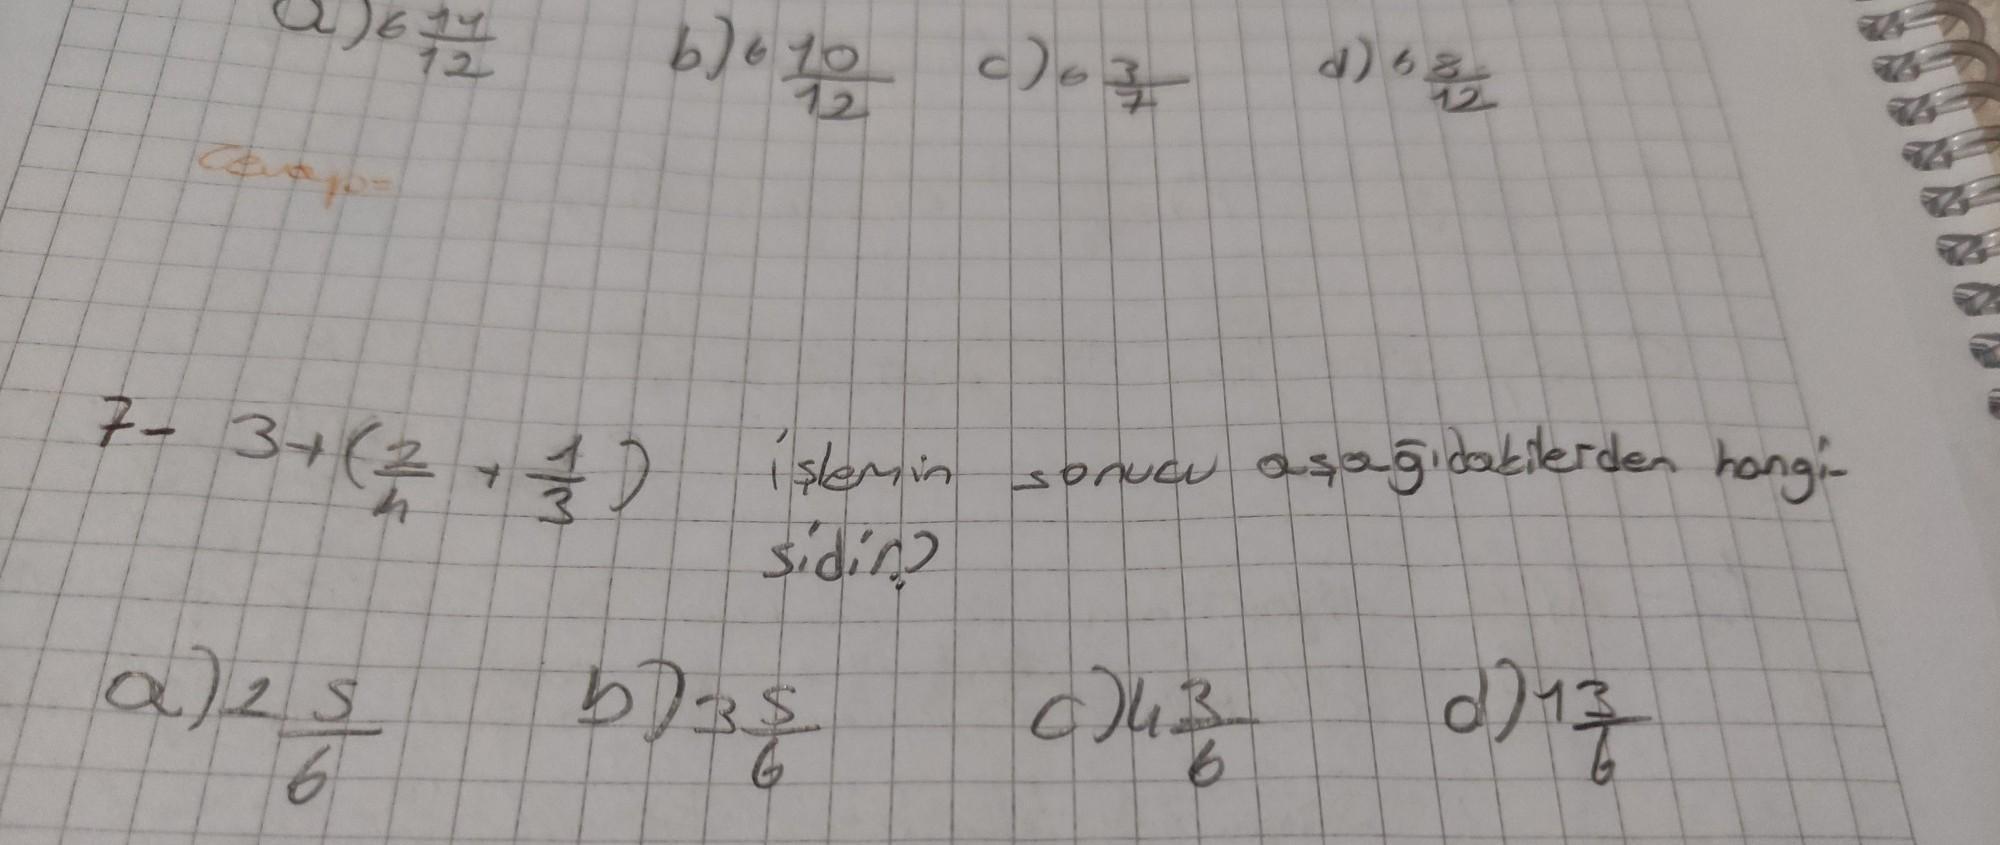 a) 6 11/12 b) 6 10/12 c) 6 3/7 d) 6 8/12
Cevap=
7 - 3 + (2/4 + 1/3) işlemin sonucu aşağıdakilerden hangi-
sidir?
a) 2 5/6 b) 3 5/6 c) 4 3/6 d) 1 3/6